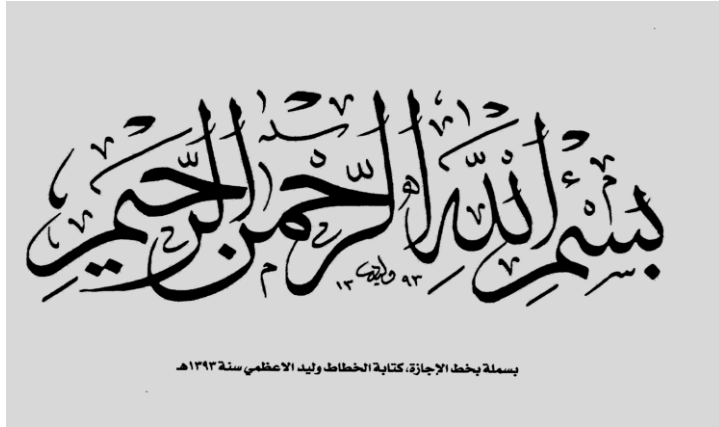 بِسْمِ اللهِ الرَّحْمنِ الرَّحِيمِ
وليد ١٣٩٣
بسملة بخط الإجازة، كتابة الخطاط وليد الاعظمي سنة ١٣٩٣هـ